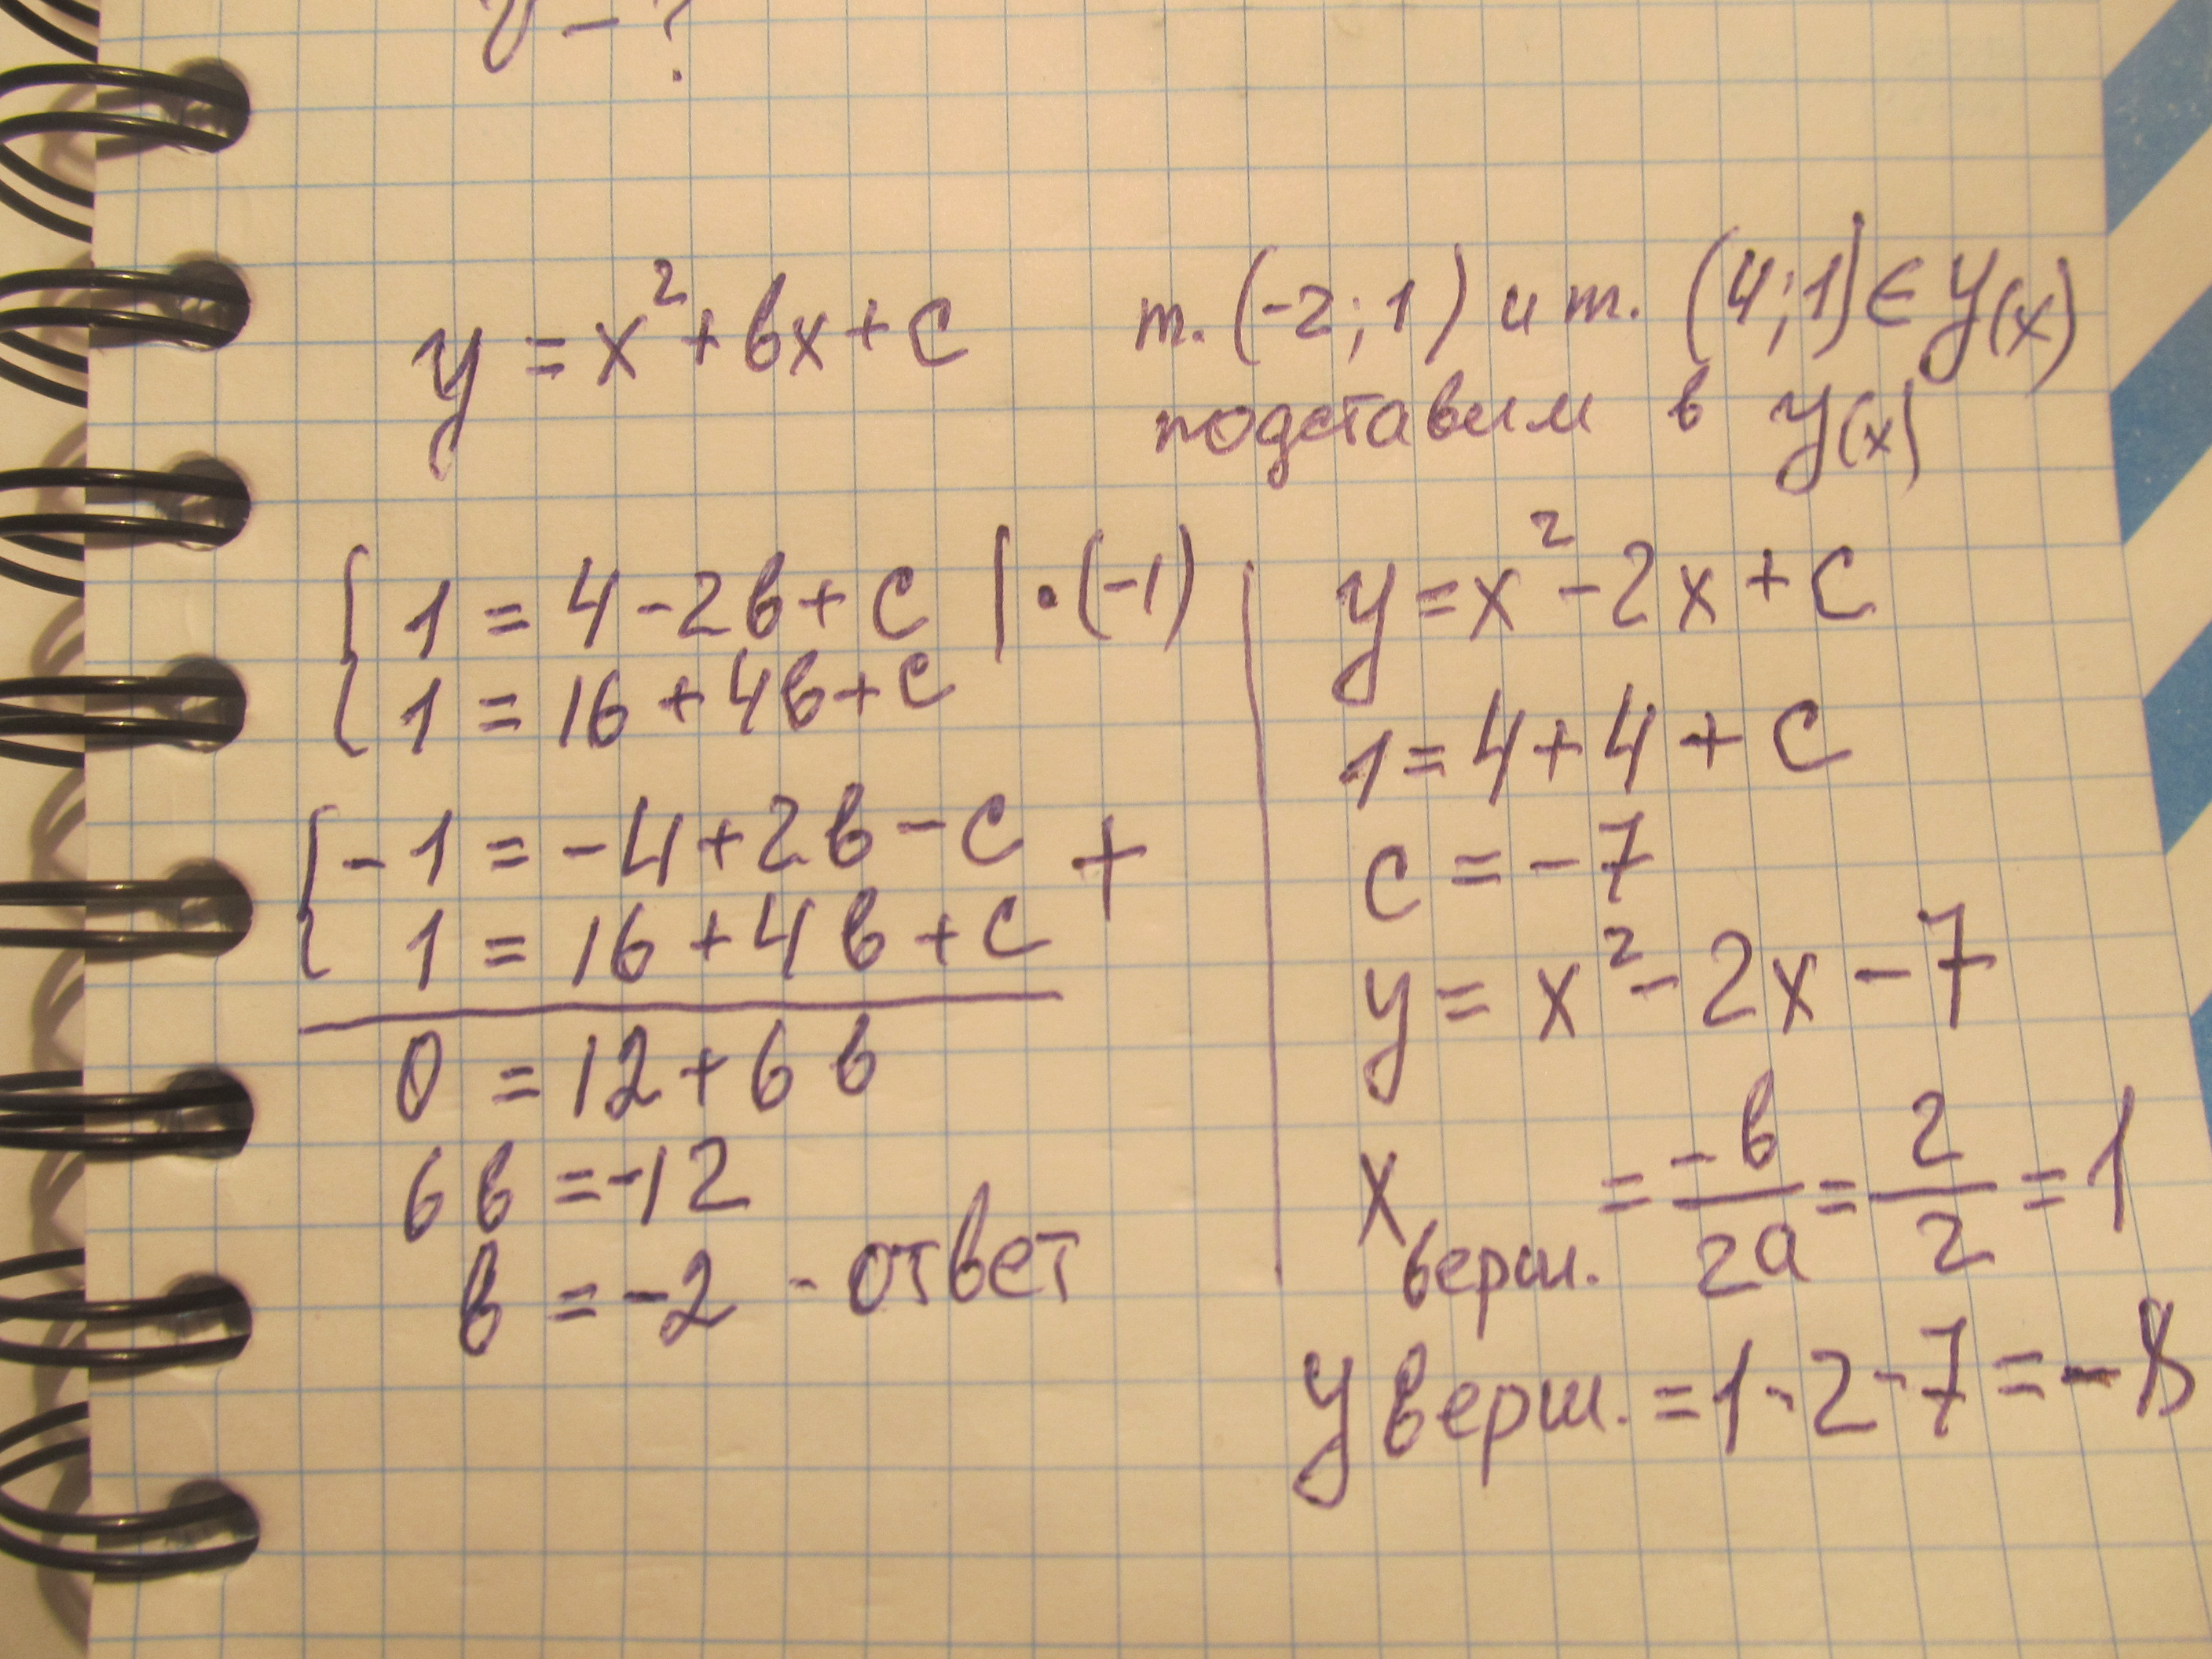 v - ?
y = x² + bx + c
т. (-2; 1) и т. (4; 1) ∈ y(x)
подставим в y(x)
{ 1 = 4 - 2b + c | · (-1)
{ 1 = 16 + 4b + c
{ -1 = -4 + 2b - c +
{ 1 = 16 + 4b + c
0 = 12 + 6b
6b = -12
b = -2 - ответ
y = x² - 2x + c
1 = 4 + 4 + c
c = -7
y = x² - 2x - 7
x верш. = -b/2a = 2/2 = 1
y верш. = 1 - 2 - 7 = -8